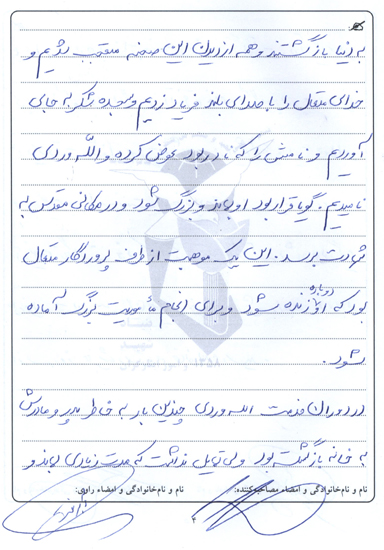 به دنیا بازگشتند و همه از دیدن این صحنه متعجب شدیم و
خدای متعال را با صدای بلند فریاد زدیم و سجده شکر به جای
آوردیم و نامش را که نادر بود عوض کرده و الله وردی
نامیدیم. گویا قرار بود او بماند و بزرگ شود و در مکانی مقدس به
شهادت برسد. این یک موهبت از طرف پروردگار متعال
بود که او دوباره زنده شود و برای انجام مأموریت بزرگ آماده
شود.
در دوران خدمت الله وردی چندین بار به خاطر پدر و مادرش
به خانه بازگشته بود ولی تمایل نداشت که مدت زیادی بماند و
نام و نام‌خانوادگی و امضاء مصاحبه‌کننده: نام و نام‌خانوادگی و امضاء راوی: